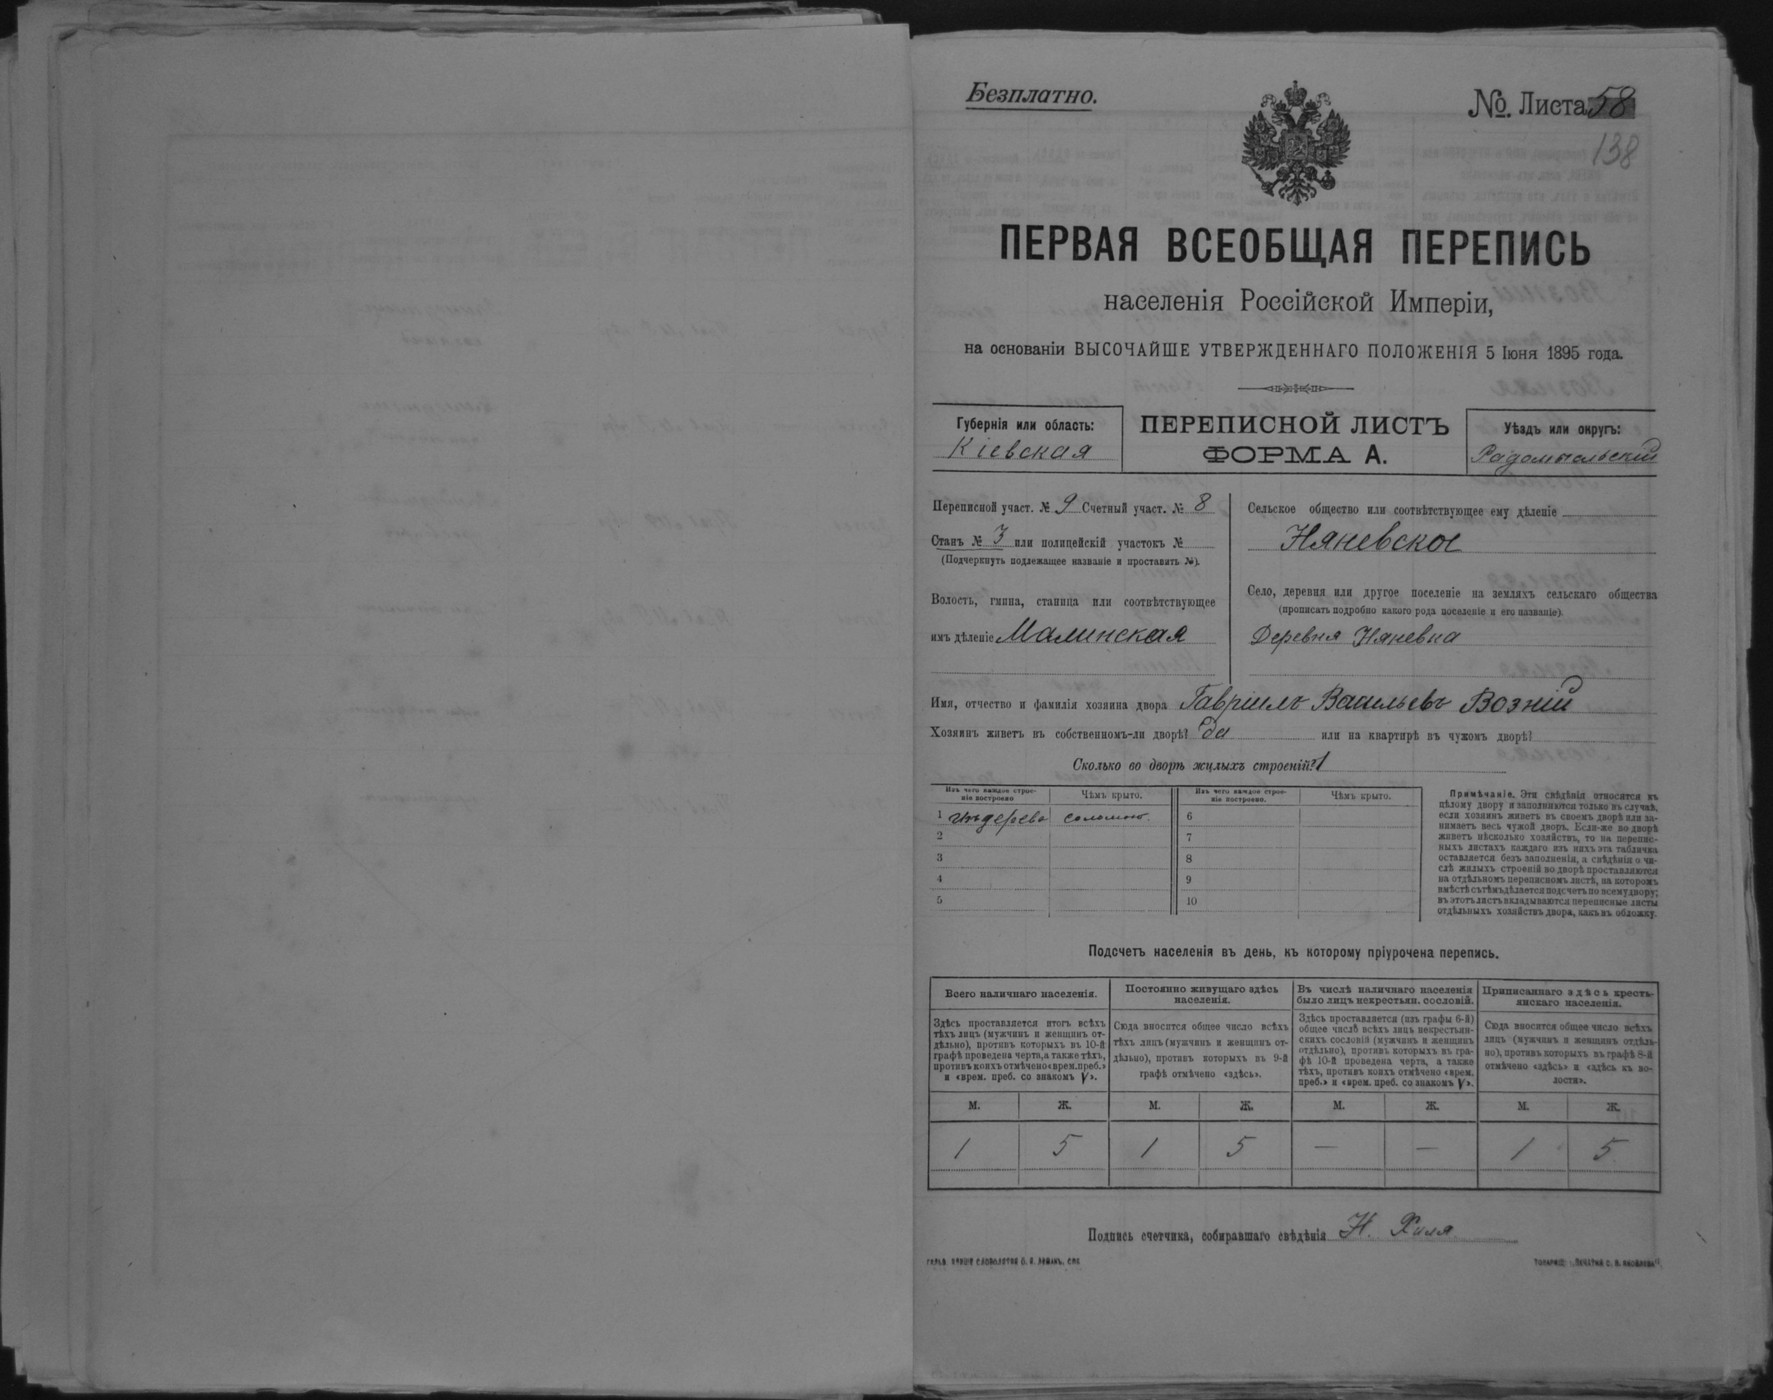 Безплатно.
№. Листа 58
138
ПЕРВАЯ ВСЕОБЩАЯ ПЕРЕПИСЬ
населенія Россійской Имперіи,
на основаніи ВЫСОЧАЙШЕ УТВЕРЖДЕННАГО ПОЛОЖЕНІЯ 5 Іюня 1895 года.
Губернія или область:
Кіевская
ПЕРЕПИСНОЙ ЛИСТЪ
ФОРМА А.
Уѣздъ или округъ:
Радомысльскій
Переписной участ. № 9 Счетный участ. № 8
Станъ № 3 или полицейскій участокъ №
(Подчеркнуть подлежащее названіе и проставить №).
Волость, гмина, станица или соотвѣтствующее
имъ дѣленіе Малинская
Сельское общество или соотвѣтствующее ему дѣленіе
Няневское
Село, деревня или другое поселеніе на земляхъ сельскаго общества
(прописать подробно какого рода поселеніе и его названіе).
Деревня Няневка
Имя, отчество и фамилія хозяина двора Гавріилъ Васильевъ Возній
Хозяинъ живетъ въ собственномъ-ли дворѣ? да или на квартирѣ въ чужомъ дворѣ?
Сколько во дворѣ жилыхъ строеній? 1
Изъ чего каждое строе-
ніе построено
Чѣмъ крыто.
Изъ чего каждое строе-
ніе построено.
Чѣмъ крыто.
1 изъ дерева соломою
6
2
7
3
8
4
9
5
10
Примѣчаніе. Эти свѣдѣнія относятся къ
цѣлому двору и заполняются только въ случаѣ,
если хозяинъ живетъ въ своемъ дворѣ или за-
нимаетъ весь чужой дворъ. Если-же во дворѣ
живетъ нѣсколько хозяйствъ, то на перепис-
ныхъ листахъ каждаго изъ нихъ эта табличка
оставляется безъ заполненія, а свѣдѣнія о чи-
слѣ жилыхъ строеній во дворѣ проставляются
на отдѣльномъ переписномъ листѣ, на которомъ
вмѣстѣ съ тѣмъ дѣлается подсчетъ по всему двору;
въ этотъ листъ вкладываются переписные листы
отдѣльныхъ хозяйствъ двора, какъ въ обложку.
Подсчетъ населенія въ день, къ которому пріурочена перепись.
Всего наличнаго населенія.
Здѣсь проставляется итогъ всѣхъ
тѣхъ лицъ (мужчинъ и женщинъ от-
дѣльно), противъ которыхъ въ 10-й
графѣ проведена черта, а также тѣхъ,
противъ коихъ отмѣчено «врем. преб.»
и «врем. преб. со знакомъ V».
Постоянно живущаго здѣсь
населенія.
Сюда вносится общее число всѣхъ
тѣхъ лицъ (мужчинъ и женщинъ от-
дѣльно), противъ которыхъ въ 9-й
графѣ отмѣчено «здѣсь».
Въ числѣ наличнаго населенія
было лицъ некрестьян. сословій.
Здѣсь проставляется (изъ графы 6-й)
общее числѣ всѣхъ лицъ некрестьян-
скихъ сословій (мужчинъ и женщинъ
отдѣльно), противъ которыхъ въ гра-
фѣ 10-й проведена черта, а также
тѣхъ, противъ коихъ отмѣчено «врем.
преб.» и «врем. преб. со знакомъ V».
Приписаннаго здѣсь кресть-
янскаго населенія.
Сюда вносится общее число всѣхъ
лицъ (мужчинъ и женщинъ отдѣль-
но), противъ которыхъ въ графѣ 8-й
отмѣчено «здѣсь» и «здѣсь въ во-
лости».
М. Ж. М. Ж. М. Ж. М. Ж.
1 5 1 5 — — 1 5
Подпись счетчика, собиравшаго свѣдѣнія Н. Хиля